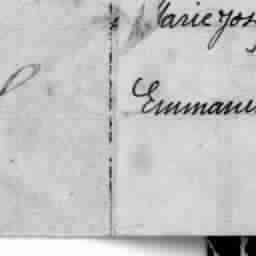 Marie Jos
Emmanu